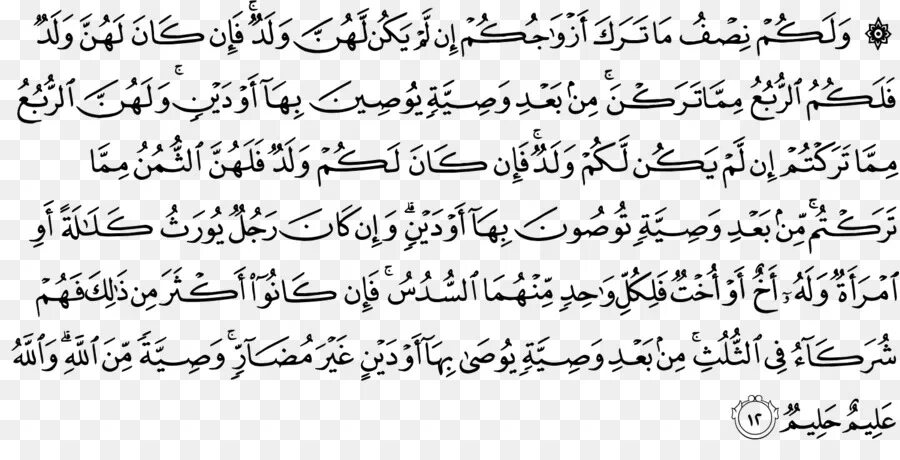 ۞ وَلَكُمۡ نِصۡفُ مَا تَرَكَ أَزۡوَٰجُكُمۡ إِن لَّمۡ يَكُن لَّهُنَّ وَلَدٞۚ فَإِن كَانَ لَهُنَّ وَلَدٞ
فَلَكُمُ ٱلرُّبُعُ مِمَّا تَرَكۡنَۚ مِنۢ بَعۡدِ وَصِيَّةٖ يُوصِينَ بِهَآ أَوۡ دَيۡنٖۚ وَلَهُنَّ ٱلرُّبُعُ
مِمَّا تَرَكۡتُمۡ إِن لَّمۡ يَكُن لَّكُمۡ وَلَدٞۚ فَإِن كَانَ لَكُمۡ وَلَدٞ فَلَهُنَّ ٱلثُّمُنُ مِمَّا
تَرَكۡتُمۚ مِّنۢ بَعۡدِ وَصِيَّةٖ تُوصُونَ بِهَآ أَوۡ دَيۡنٖۗ وَإِن كَانَ رَجُلٞ يُورَثُ كَلَٰلَةً أَوِ
ٱمۡرَأَةٞ وَلَهُۥٓ أَخٌ أَوۡ أُخۡتٞ فَلِكُلِّ وَٰحِدٖ مِّنۡهُمَا ٱلسُّدُسُۚ فَإِن كَانُوٓاْ أَكۡثَرَ مِن ذَٰلِكَ فَهُمۡ
شُرَكَآءُ فِي ٱلثُّلُثِۚ مِنۢ بَعۡدِ وَصِيَّةٖ يُوصَىٰ بِهَآ أَوۡ دَيۡنٍ غَيۡرَ مُضَآرّٖۚ وَصِيَّةٗ مِّنَ ٱللَّهِۗ وَٱللَّهُ
عَلِيمٌ حَلِيمٞ ١٢